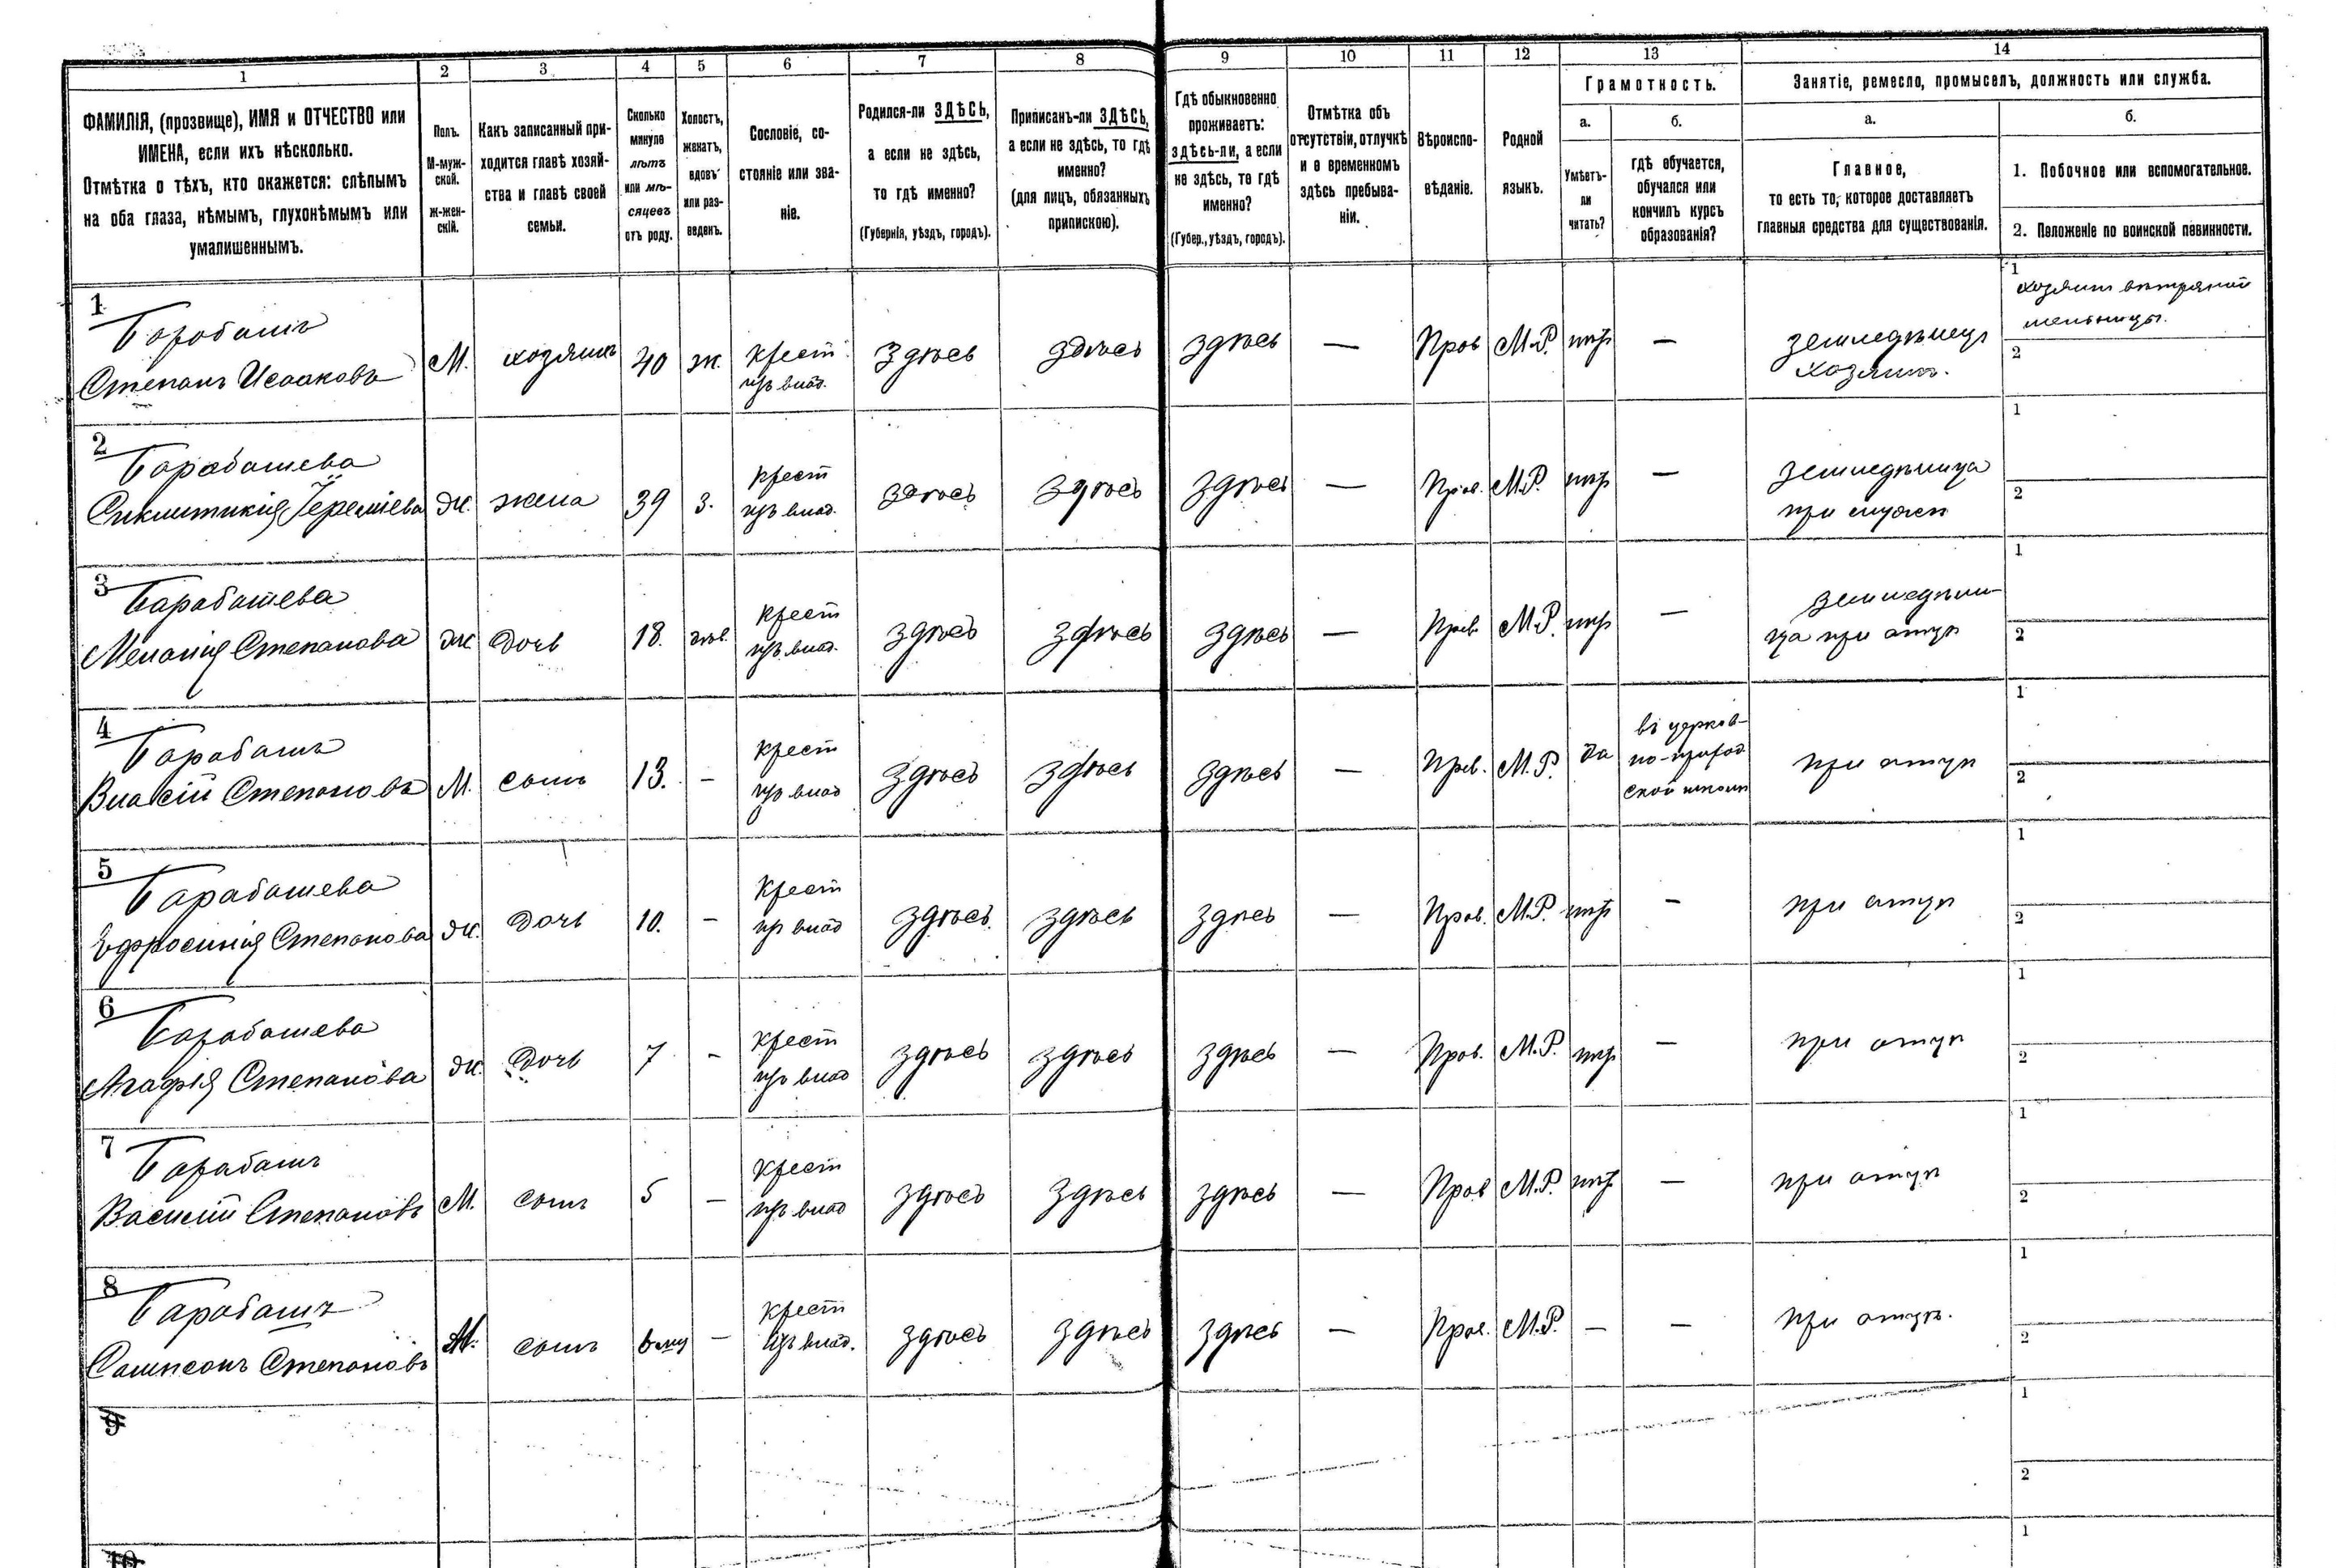 1 2 3 4 5 6 7 8 9 10 11 12 13 14
ФАМИЛІЯ, (прозвище), ИМЯ и ОТЧЕСТВО или
ИМЕНА, если ихъ нѣсколько.
Отмѣтка о тѣхъ, кто окажется: слѣпымъ
на оба глаза, нѣмымъ, глухонѣмымъ или
умалишеннымъ.
Полъ.
М-муж-
ской.
ж-жен-
скій.
Какъ записанный при-
ходится главѣ хозяй-
ства и главѣ своей
семьи.
Сколько
минуло
лѣтъ
или мѣ-
сяцевъ
отъ роду.
Холостъ,
женатъ,
вдовъ
или раз-
веденъ.
Сословіе, со-
стояніе или зва-
ніе.
Родился-ли ЗДѢСЬ,
а если не здѣсь,
то гдѣ именно?
(Губернія, уѣздъ, городъ).
Приписанъ-ли ЗДѢСЬ,
а если не здѣсь, то гдѣ
именно?
(для лицъ, обязанныхъ
припискою).
Гдѣ обыкновенно
проживаетъ:
здѣсь-ли, а если
не здѣсь, то гдѣ
именно?
(Губер., уѣздъ, городъ).
Отмѣтка объ
отсутствіи, отлучкѣ
и о временномъ
здѣсь пребыва-
ніи.
Вѣроиспо-
вѣданіе.
Родной
языкъ.
Грамотность.
а.
Умѣетъ-
ли
читать?
б.
гдѣ обучается,
обучался или
кончилъ курсъ
образованія?
Занятіе, ремесло, промыселъ, должность или служба.
а.
Главное,
то есть то, которое доставляетъ
главныя средства для существованія.
б.
1. Побочное или вспомогательное.
2. Положеніе по воинской повинности.
1
Барабашъ
Степанъ Исааковъ
М.
хозяинъ
40
ж.
крест
изъ влад.
здѣсь
здѣсь
здѣсь
—
Прав
М.Р.
нѣтъ
—
земледѣлецъ
хозяинъ.
1
хозяинъ вѣтряной
мельницы.
2
2
Барабашева
Синклитикія Іереміева
ж.
жена
39
з.
крест
изъ влад.
здѣсь
здѣсь
здѣсь
—
Прав.
М.Р.
нѣтъ
—
земледѣлица
при мужѣ
1
2
3
Барабашева
Меланія Степанова
ж
дочь
18.
дѣв.
крест
изъ влад.
здѣсь
здѣсь
здѣсь
—
Прав
М.Р.
нѣтъ
—
земледѣли-
ца при отцѣ
1
2
4
Барабашъ
Власій Степановъ
М.
сынъ
13.
—
крест
изъ влад
здѣсь
здѣсь
здѣсь
—
Прав.
М.Р.
да
въ церков-
но-приход
ской школѣ
при отцѣ
1
2
5
Барабашева
Ефросинія Степанова
ж.
дочь
10.
—
крест
изъ влад
здѣсь
здѣсь
здѣсь
—
Прав.
М.Р.
нѣтъ
—
при отцѣ
1
2
6
Барабашева
Агафія Степанова
ж.
дочь
7
—
крест
изъ влад
здѣсь
здѣсь
здѣсь
—
Прав.
М.Р.
нѣтъ
—
при отцѣ
1
2
7
Барабашъ
Василій Степановъ
М.
сынъ
5
—
крест
изъ влад
здѣсь
здѣсь
здѣсь
—
Прав
М.Р.
нѣтъ
—
при отцѣ
1
2
8
Барабашъ
Сампсонъ Степановъ
М.
сынъ
—
крест
изъ влад.
здѣсь
здѣсь
здѣсь
—
Прав.
М.Р.
—
—
при отцѣ.
1
2
9
1
2
10
1